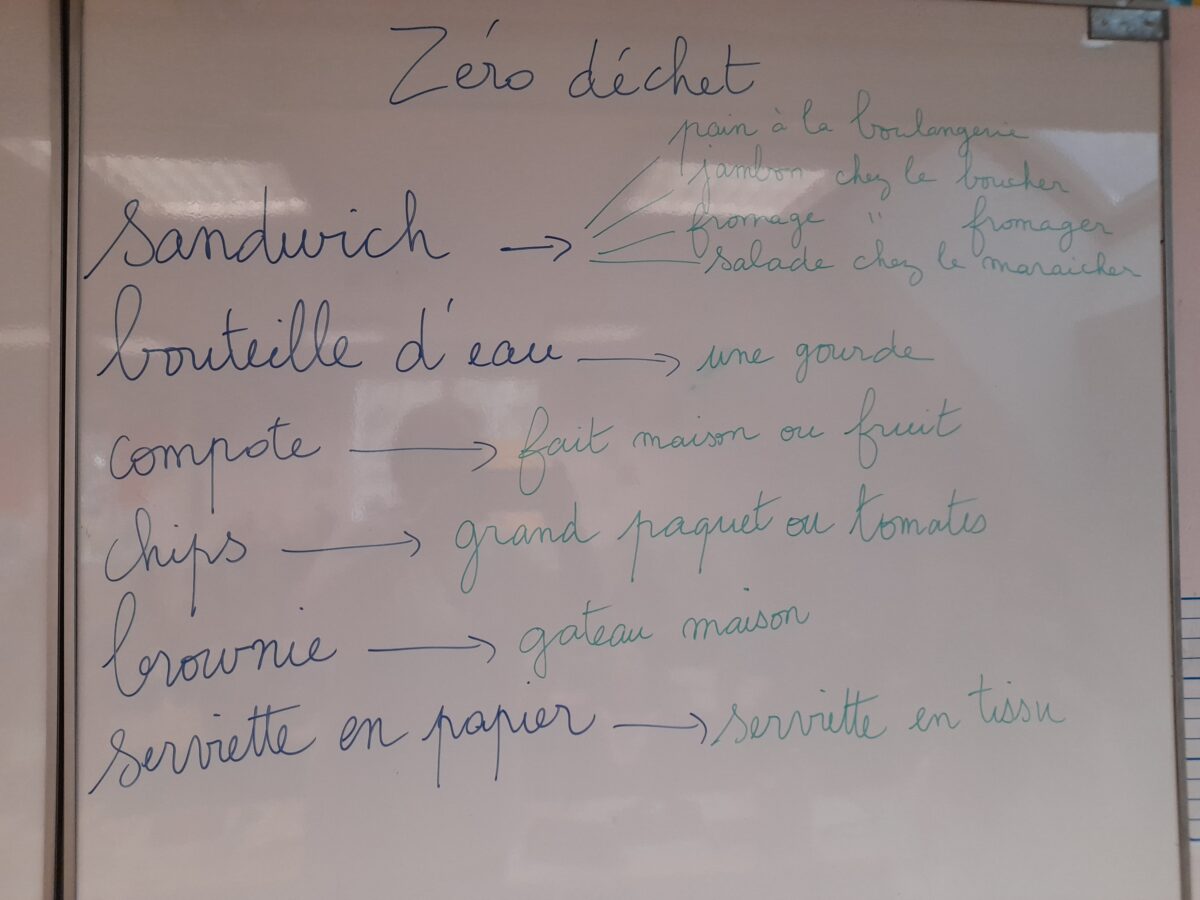 Zéro déchet
pain à la boulangerie
jambon chez le boucher
fromage " fromager
sandwich → salade chez le maraicher
bouteille d'eau → une gourde
compote → fait maison ou fruit
chips → grand paquet ou tomates
brownie → gateau maison
serviette en papier → serviette en tissu